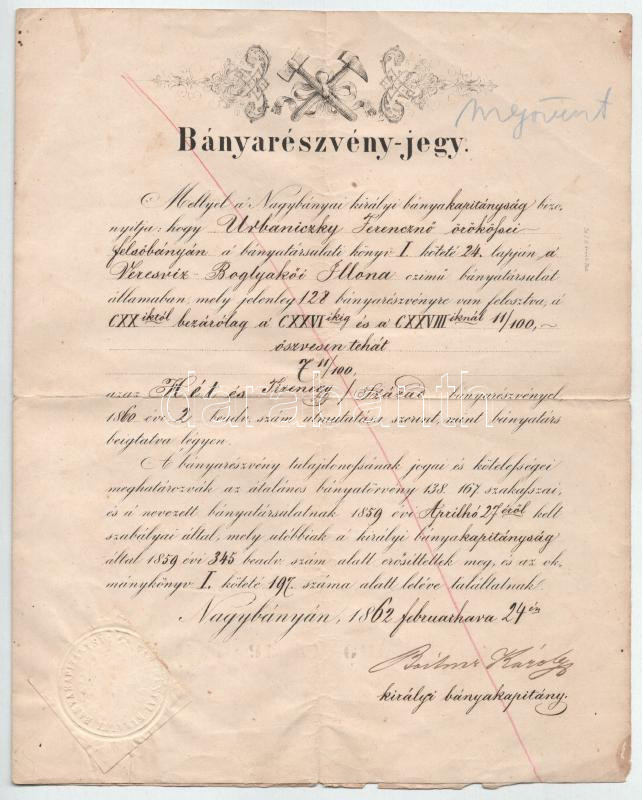 megszünt
Bányarészvény-jegy.
Mellyel a' Nagybányai királyi bányakapitányság bizo-
nyitja: hogy Urbaniczky Ferencznő örökössei
felsőbányán a bányatársulati könyv I. köteté 24. lapján a
Veresviz-Boglyakői Illona czimű bányatársulat
államában, mely jelenleg 128 bányarészvényre van felosztva, a
CXX iktól bezárólag a CXXVI ikig és a CXXVIII iknál 11/100,~
öszvesen tehát
7 11/100,
azaz Hét és Tizenegy/Század bányarészvényel,
1860 évi 2 beadv. szám utmutatása szerint, mint bányatárs
beigtatva légyen.
A bányarészvény tulajdonossának jogai és kötelességei
meghatározvák az átalános bányatörvény 138. 167 szakaszai,
és a nevezett bányatársulatnak 1859 évi Aprilhó 27 éről kelt
szabályai által, mely utóbbiak a királyi bányakapitányság
által 1859 évi 345 beadv. szám alatt erősittettek meg, és az ok-
mánykönyv I. köteté 197. száma alatt letéve találtatnak.
Nagybányán, 1862 februarhava 24 én
Károly
királyi bányakapitány.
Darabanth